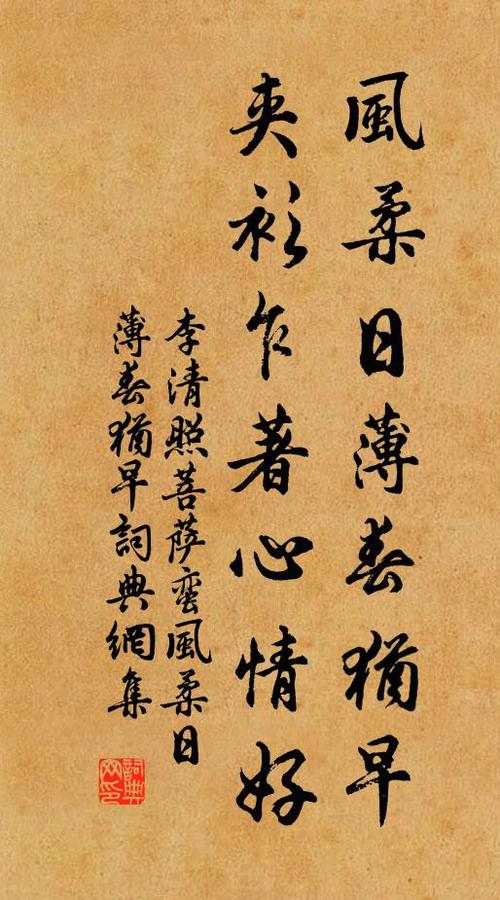 風柔日薄春猶早
夾衫乍著心情好
李清照菩薩蠻風柔日
薄春猶早詞典網集
詞典
网印